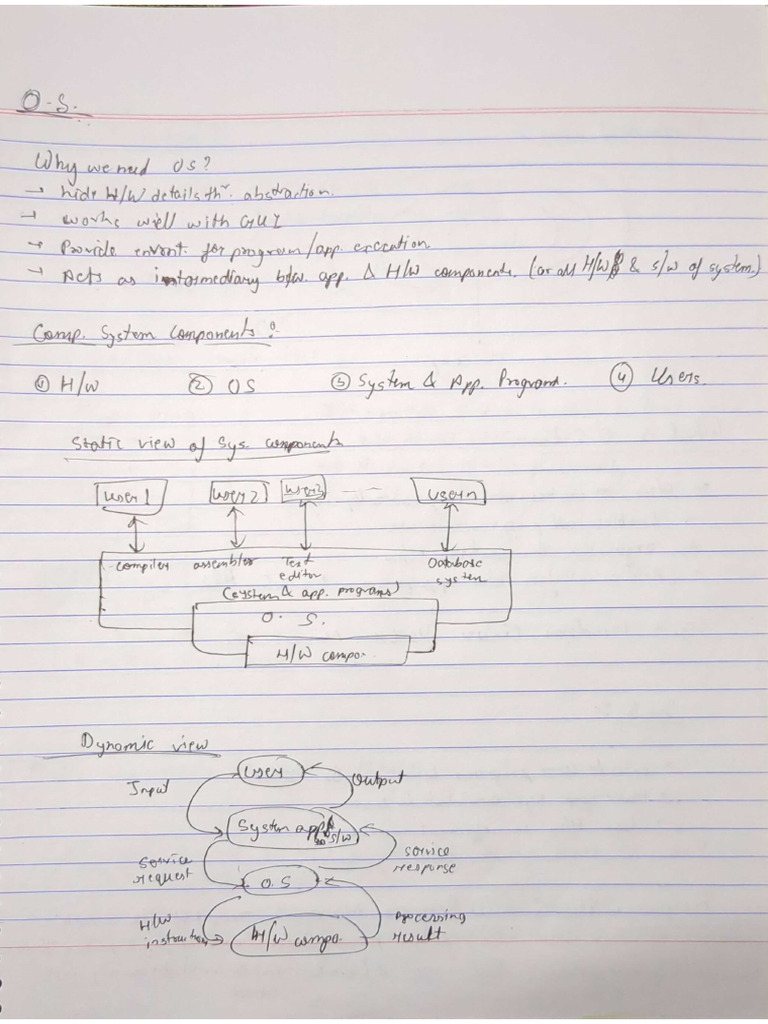 O.S.
Why we need OS?
→ hide H/W details thr. abstraction.
→ works well with GUI
→ Provide envont. for program/app. execution
→ Acts as intermediary b/w. app. & H/W components. (or all H/W & S/W of system.)
Comp. System Components :-
① H/W ② OS ③ System & App. Programs. ④ Users.
Static view of Sys. components
user1 user2 user3 --- -- usern
compiler assembler Text editor Database system
(system & app. programs)
O. S.
H/W compo.
Dynamic view
user
Input Output
System app S/W
Service request service response
O.S
H/W instruction Processing result
H/W compo.